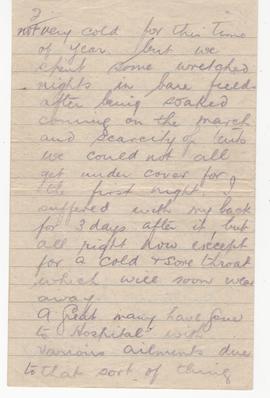 2
not very cold for this time
of year but we
spent some wretched
nights in bare fields
after being soaked
coming on the march
and scarcity of tents
we could not all
get under cover for
the first night I
suffered with my back
for 3 days after it, but
all right now except
for a cold & sore throat
which will soon wear
away.
A great many have gone
to Hospital with
various ailments due
to that sort of thing